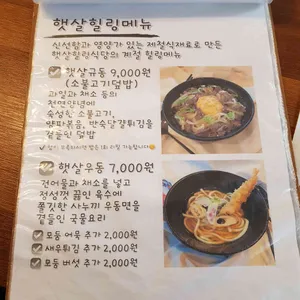 햇살힐링메뉴
신선함과 영양가 있는 제철식재료로 만든
햇살힐링식당의 계절 힐링메뉴
햇살규동 9,000원
(소불고기덮밥)
과일과 채소 등의
천연양념에
숙성한 소불고기,
양파볶음, 반숙달걀튀김을
곁들인 덮밥
햇살우동 7,000원
건어물과 채소를 넣고
정성껏 끓인 육수에
쫄깃한 사누끼 우동면을
곁들인 국물요리
모둠 어묵 추가 2,000원
새우튀김 추가 2,000원
모둠 버섯 추가 2,000원